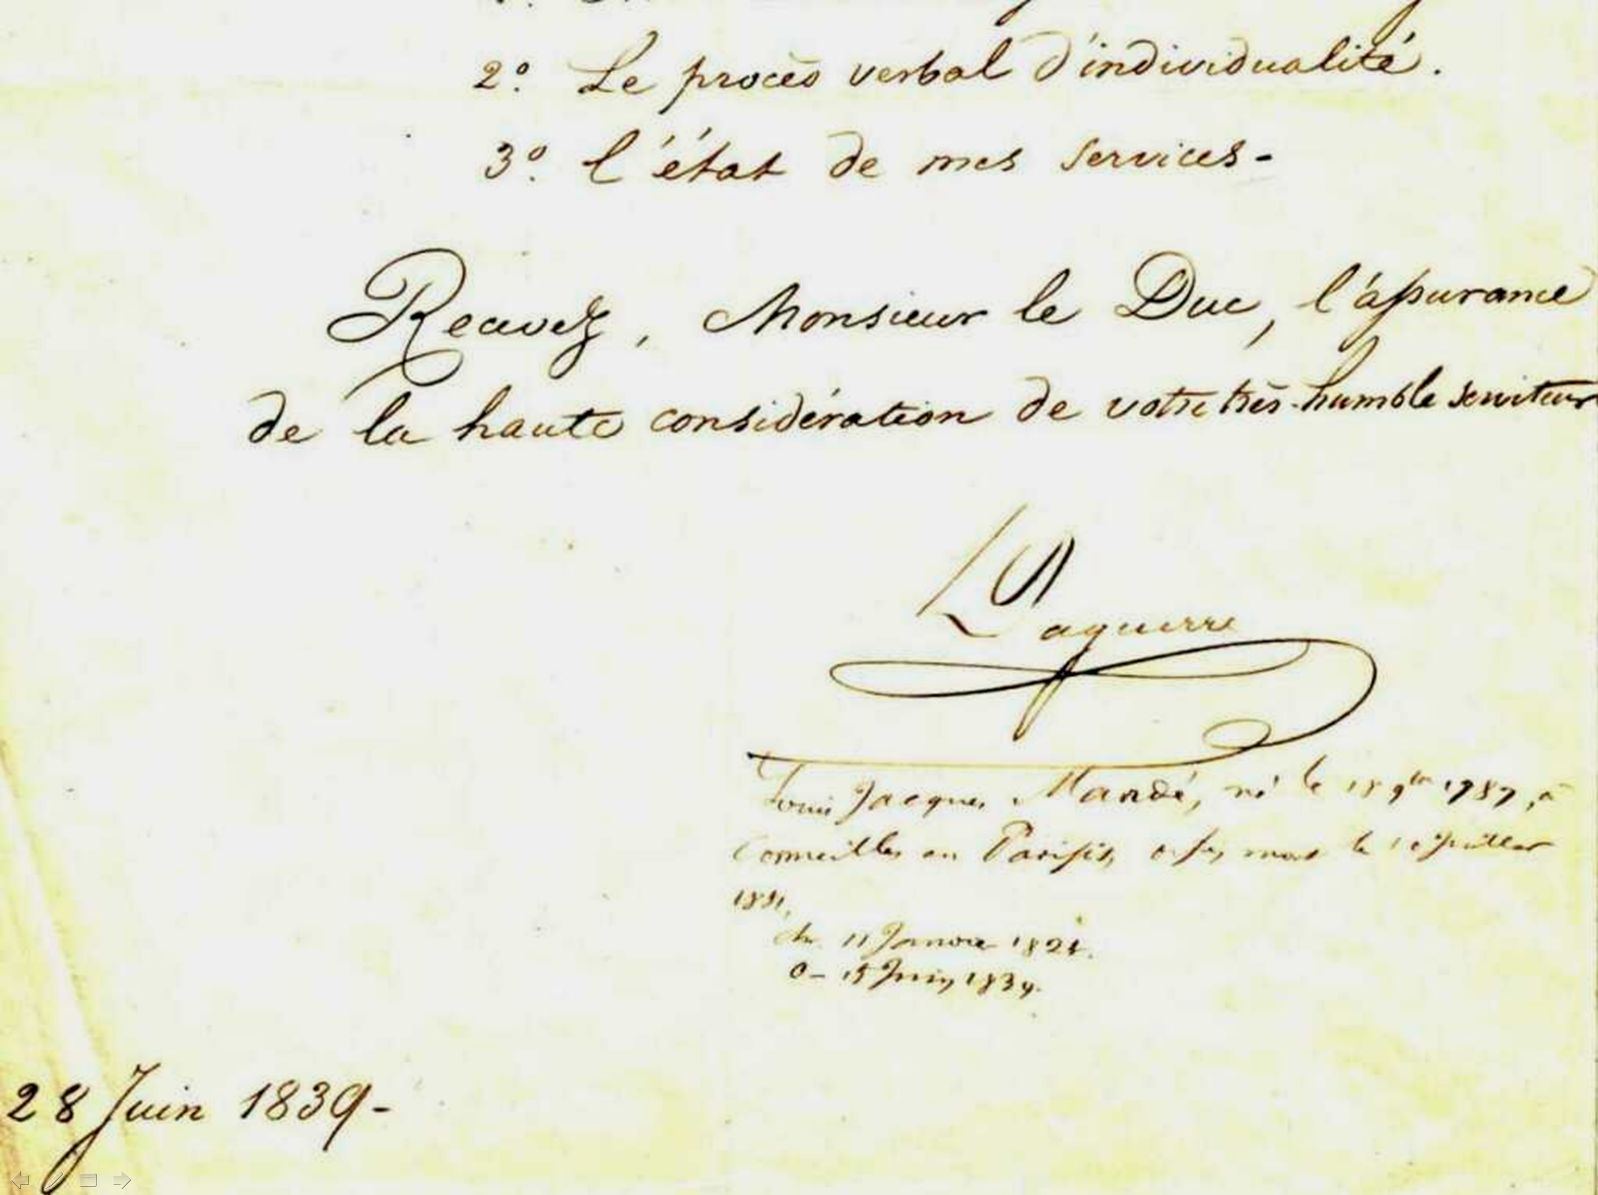 2º. Le procès verbal d'individualité.
3º. l'état de mes services-
Recevez, Monsieur le Duc, l'assurance
de la haute considération de votre très-humble serviteur
Daguerre
Louis Jacques Mandé, né le 18 9bre 1787, à
Cormeilles en Parisis, mort le 10 juillet
1851,
chr 11 Janvier 1824.
O- 15 Juin 1839.
28 Juin 1839-